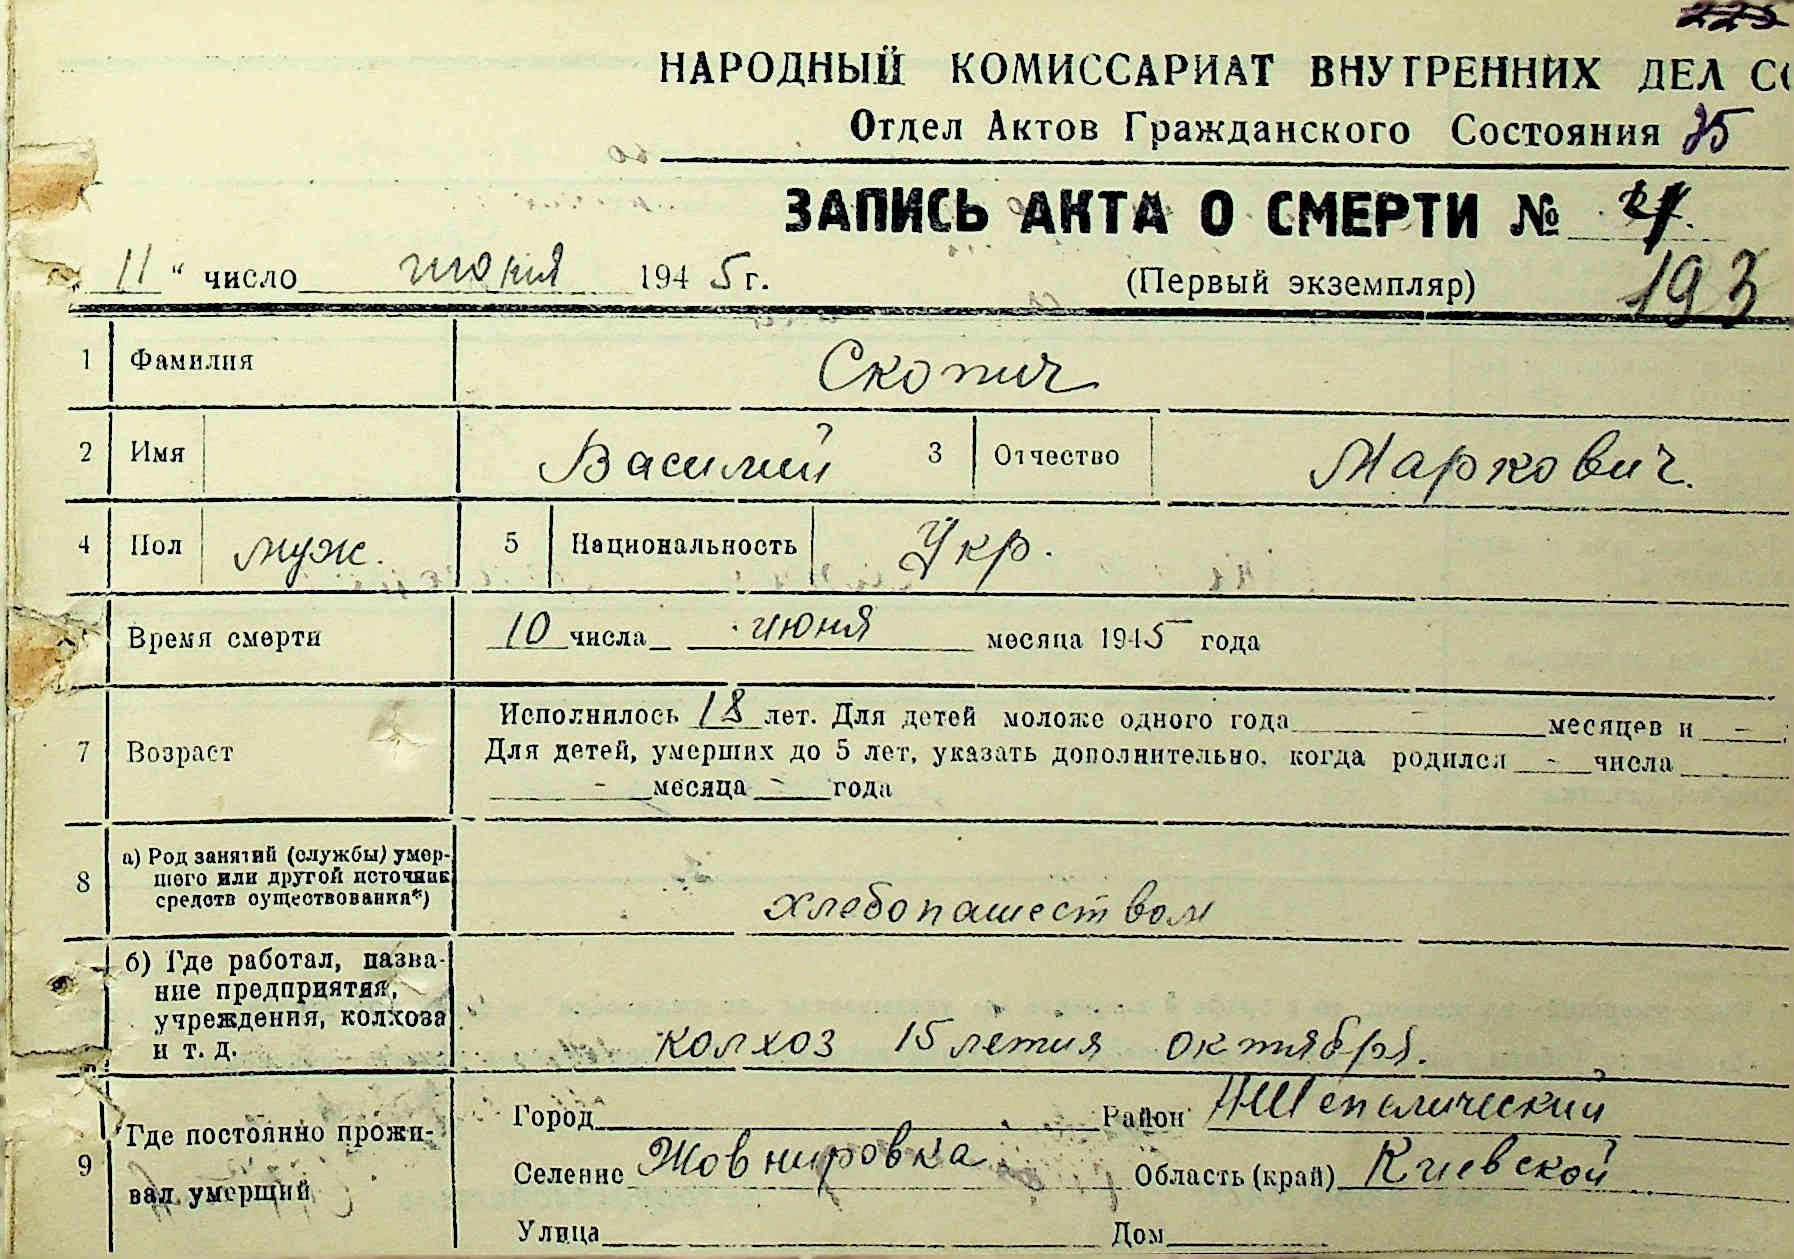 225
НАРОДНЫЙ КОМИССАРИАТ ВНУТРЕННИХ ДЕЛ СС
Отдел Актов Гражданского Состояния 35
ЗАПИСЬ АКТА О СМЕРТИ №
„ 11 “ число июня 1945 г. (Первый экземпляр) 193
1 Фамилия Скопич
2 Имя Василий 3 Отчество Маркович.
4 Пол муж. 5 Национальность Укр.
Время смерти 10 числа июня месяца 1945 года
Исполнилось 18 лет. Для детей моложе одного года - месяцев и -
7 Возраст Для детей, умерших до 5 лет, указать дополнительно, когда родился - числа
- месяца - года
8 а) Род занятий (службы) умер-
шего или другой источник
средств существования*) хлебопашеством
б) Где работал, назва-
ние предприятия,
учреждения, колхоза
и т. д. колхоз 15 летия октября.
9 Где постоянно прожи-
вал умерший
Город Район
Селение Жовнировка Область (край) Киевской
Улица Дом